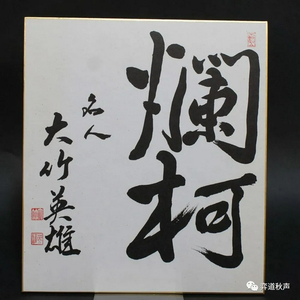 爛柯
名人
大竹英雄
弈道秋声